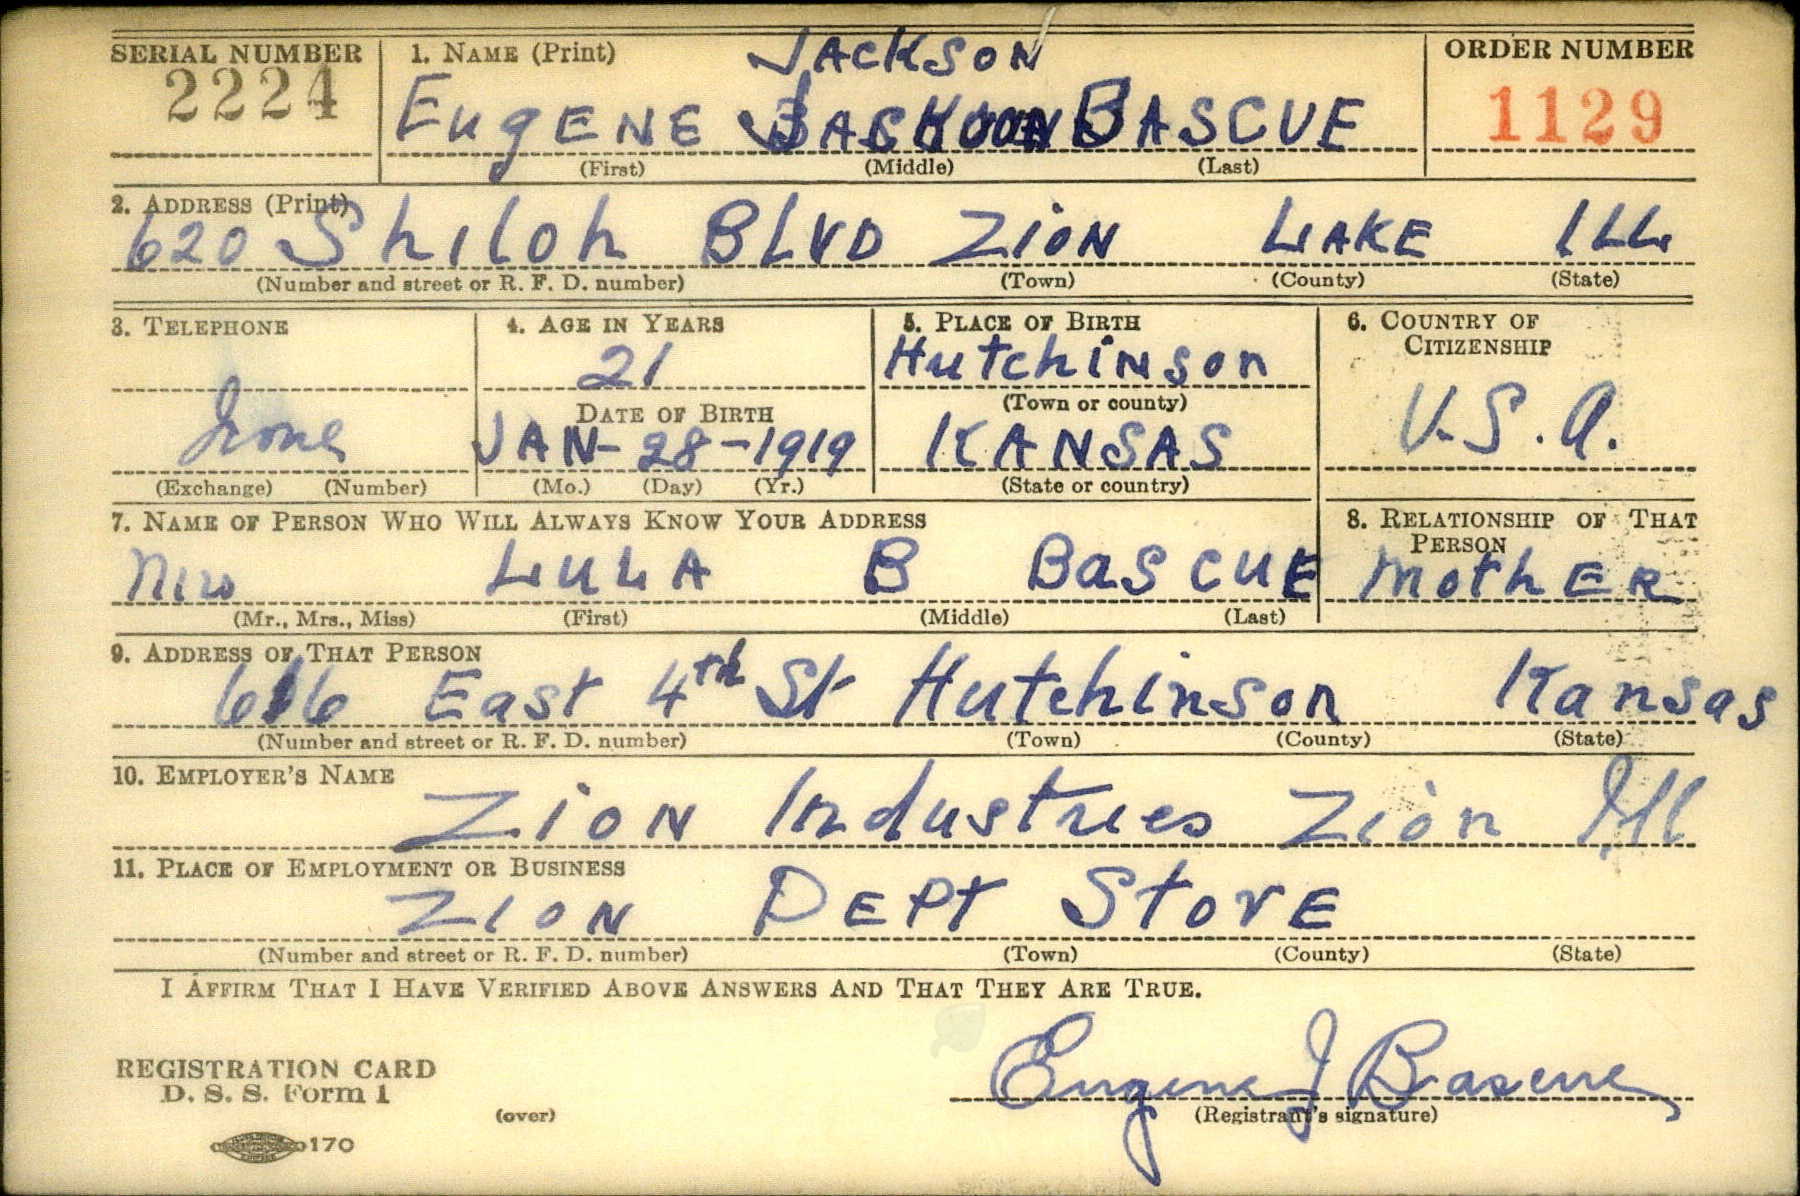 SERIAL NUMBER 1. NAME (Print) ORDER NUMBER
JACKSON
2224 EugENE BASCUE 1129
(First) (Middle) (Last)
2. ADDRESS (Print)
620 Shiloh BLVD ZiON LAKE ILL
(Number and street or R. F. D. number) (Town) (County) (State)
3. TELEPHONE 4. AGE IN YEARS 5. PLACE OF BIRTH 6. COUNTRY OF CITIZENSHIP
21 Hutchinson
DATE OF BIRTH (Town or county)
none JAN-28-1919 KANSAS U.S.A.
(Exchange) (Number) (Mo.) (Day) (Yr.) (State or country)
7. NAME OF PERSON WHO WILL ALWAYS KNOW YOUR ADDRESS 8. RELATIONSHIP OF THAT PERSON
LULA B BASCUE MothER
(Mr., Mrs., Miss) (First) (Middle) (Last)
9. ADDRESS OF THAT PERSON
616 East 4th St Hutchinson Kansas
(Number and street or R. F. D. number) (Town) (County) (State)
10. EMPLOYER'S NAME
ZiON Industries Zion Ill
11. PLACE OF EMPLOYMENT OR BUSINESS
ZION DEPt StorE
(Number and street or R. F. D. number) (Town) (County) (State)
I AFFIRM THAT I HAVE VERIFIED ABOVE ANSWERS AND THAT THEY ARE TRUE.
REGISTRATION CARD
D. S. S. Form 1
(over)
Eugene J Bascue
(Registrant's signature)
170